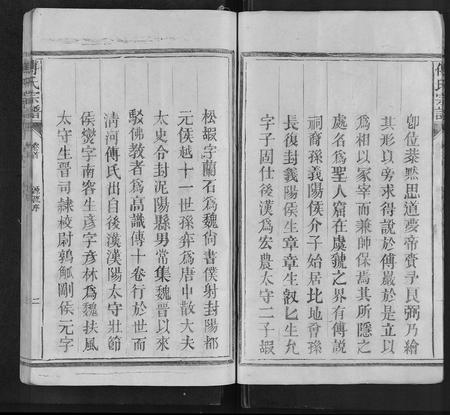 傅氏宗譜
卽位恭黙思道夢帝賚予良弼乃繪
其形以旁求得說於傅巖於是立以
為相以冢宰而兼師保焉其所隱之
處名為聖人窟在虞虢之界有傅說
祠裔孫義陽侯介子始居北地曾孫
長復封義陽侯生章章生叡叡生允
字子固仕後漢為宏農太守二子嘏
松嘏字蘭石為魏尚書僕射封陽都
元侯越十一世孫弈為唐中散大夫
太史令封泥陽縣男常集魏晉以來
駁佛教者為高識傳十卷行於世而
清河傅氏出自後漢漢陽太守壯節
侯燮字南容生彦字彦林為魏扶風
太守生晉司隸校尉鶉觚剛侯元字
傅氏宗譜
卷首
二